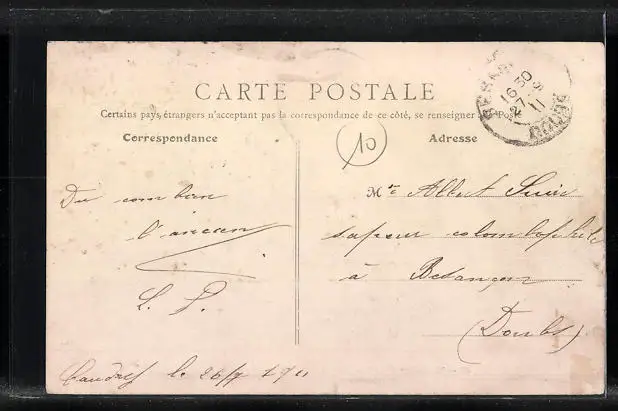 CARTE POSTALE
Certains pays étrangers n'acceptant pas la correspondance de ce côté, se renseigner à la Poste
Correspondance
Adresse
10
16 30
27
11
DOUBS
Du combien
l'ancien
L. P.
le 26/7 1911
Mr Albert
sapeur colombophile
à Besançon
(Doubs)